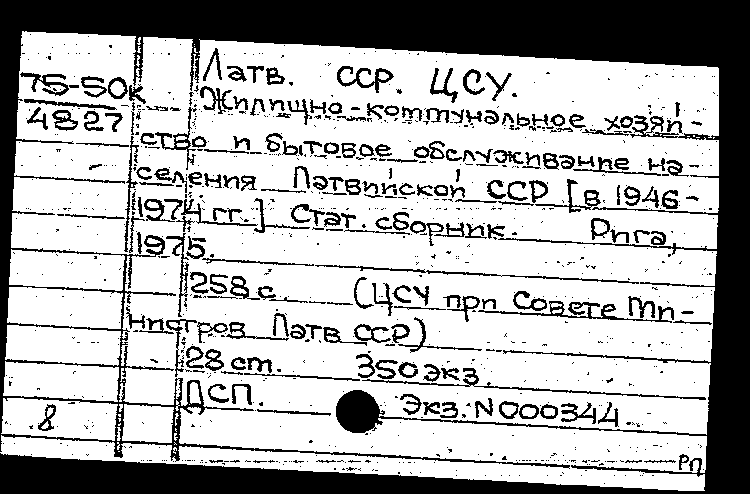 75-50к
4827
Латв. ССР. ЦСУ.
Жилищно-коммунальное хозяй-
ство и бытовое обслуживание на-
селения Латвийской ССР [в 1946-
1974 гг.] Стат. сборник. Рига,
1975.
258 с. (ЦСУ при Совете Ми-
нистров Латв ССР)
28 ст. 350 экз.
ДСП. Экз. N 000344
8
РП